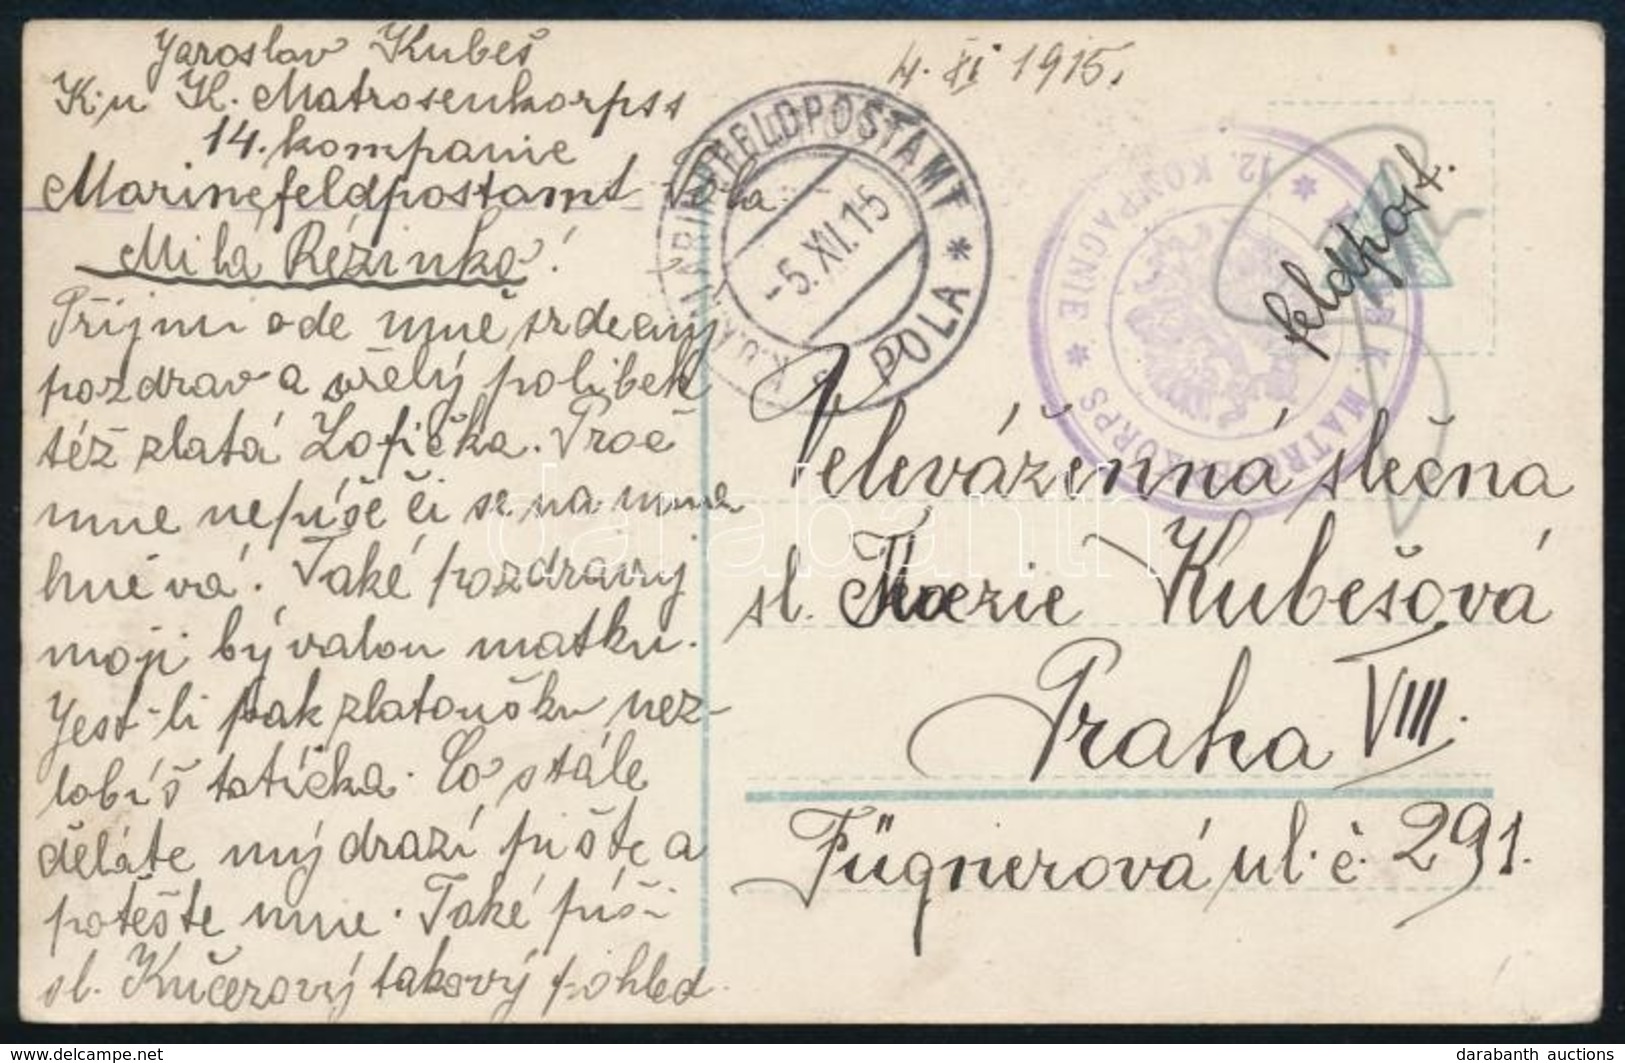 Jaroslav Kubeš
K. u K. Matrosenkorpss
14. kompanie
Marinefeldpostamt Pola.
Milá Rézinko!
Přijmi ode mne srdečný
pozdrav a vřelý polibek
též zlatá Žofička. Proč
mne nepíše či se na mne
hněvá. Také pozdravuj
moji bývalou matku.
Jest-li pak zlatoušku nez-
lobíš tatíčka. Co stále
děláte mý drazí pište a
potěšte mne. Také píši
sl. Kučerový takový pohled.
4. XI 1915.
K.U.K. MARINEFELDPOSTAMT *
-5.XII.15
POLA *
K. MATROSENKORPS *
12. KOMPAGNIE *
Feldpost.
Velevážená slečna
sl. Kubešová
Praha VIII.
Fügnerová ul. č. 291.
darabanth
darabanth auctions